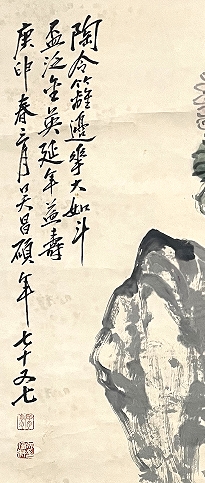 陶令籬邊華大如斗
盃泛金英延年益壽
庚申春三月吳昌碩年七十又七